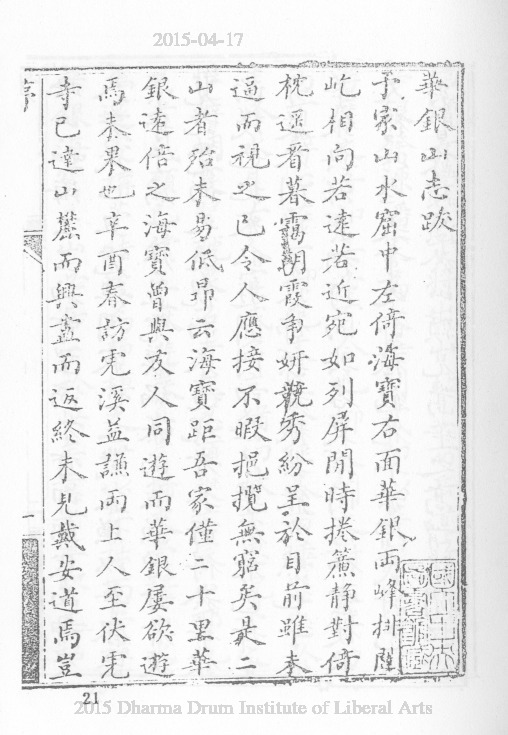 2015-04-17
華銀山志跋
予家山水窟中左倚海寶右面華銀兩峰排闥
屹相向若遠若近宛如列屏閒時捲簾静對倚
枕遥看暮靄朝霞争妍競秀紛呈於目前雖未
逼而視之已令人應接不暇挹攬無窮矣是二
山者殆未易低昂云海寶距吾家僅二十里華
銀遠倍之海寶曾與友人同遊而華銀屡欲遊
焉未果也辛酉春訪虎溪益謙兩上人至伏虎
寺已達山麓而興盡而返終未見戴安道焉豈
21
2015 Dharma Drum Institute of Liberal Arts